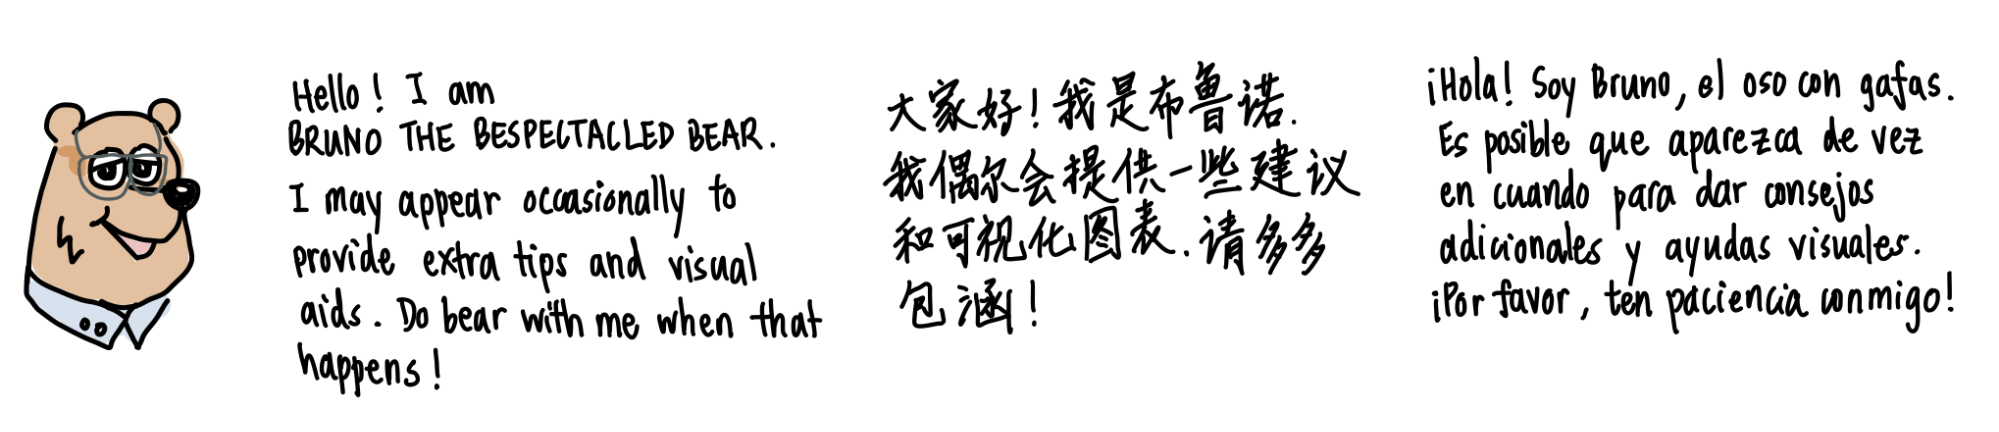 Hello! I am
BRUNO THE BESPECTACLED BEAR.
I may appear occasionally to
provide extra tips and visual
aids. Do bear with me when that
happens!
大家好!我是布鲁诺.
我偶尔会提供一些建议
和可视化图表.请多多
包涵!
¡Hola! Soy Bruno, el oso con gafas.
Es posible que aparezca de vez
en cuando para dar consejos
adicionales y ayudas visuales.
¡Por favor, ten paciencia conmigo!